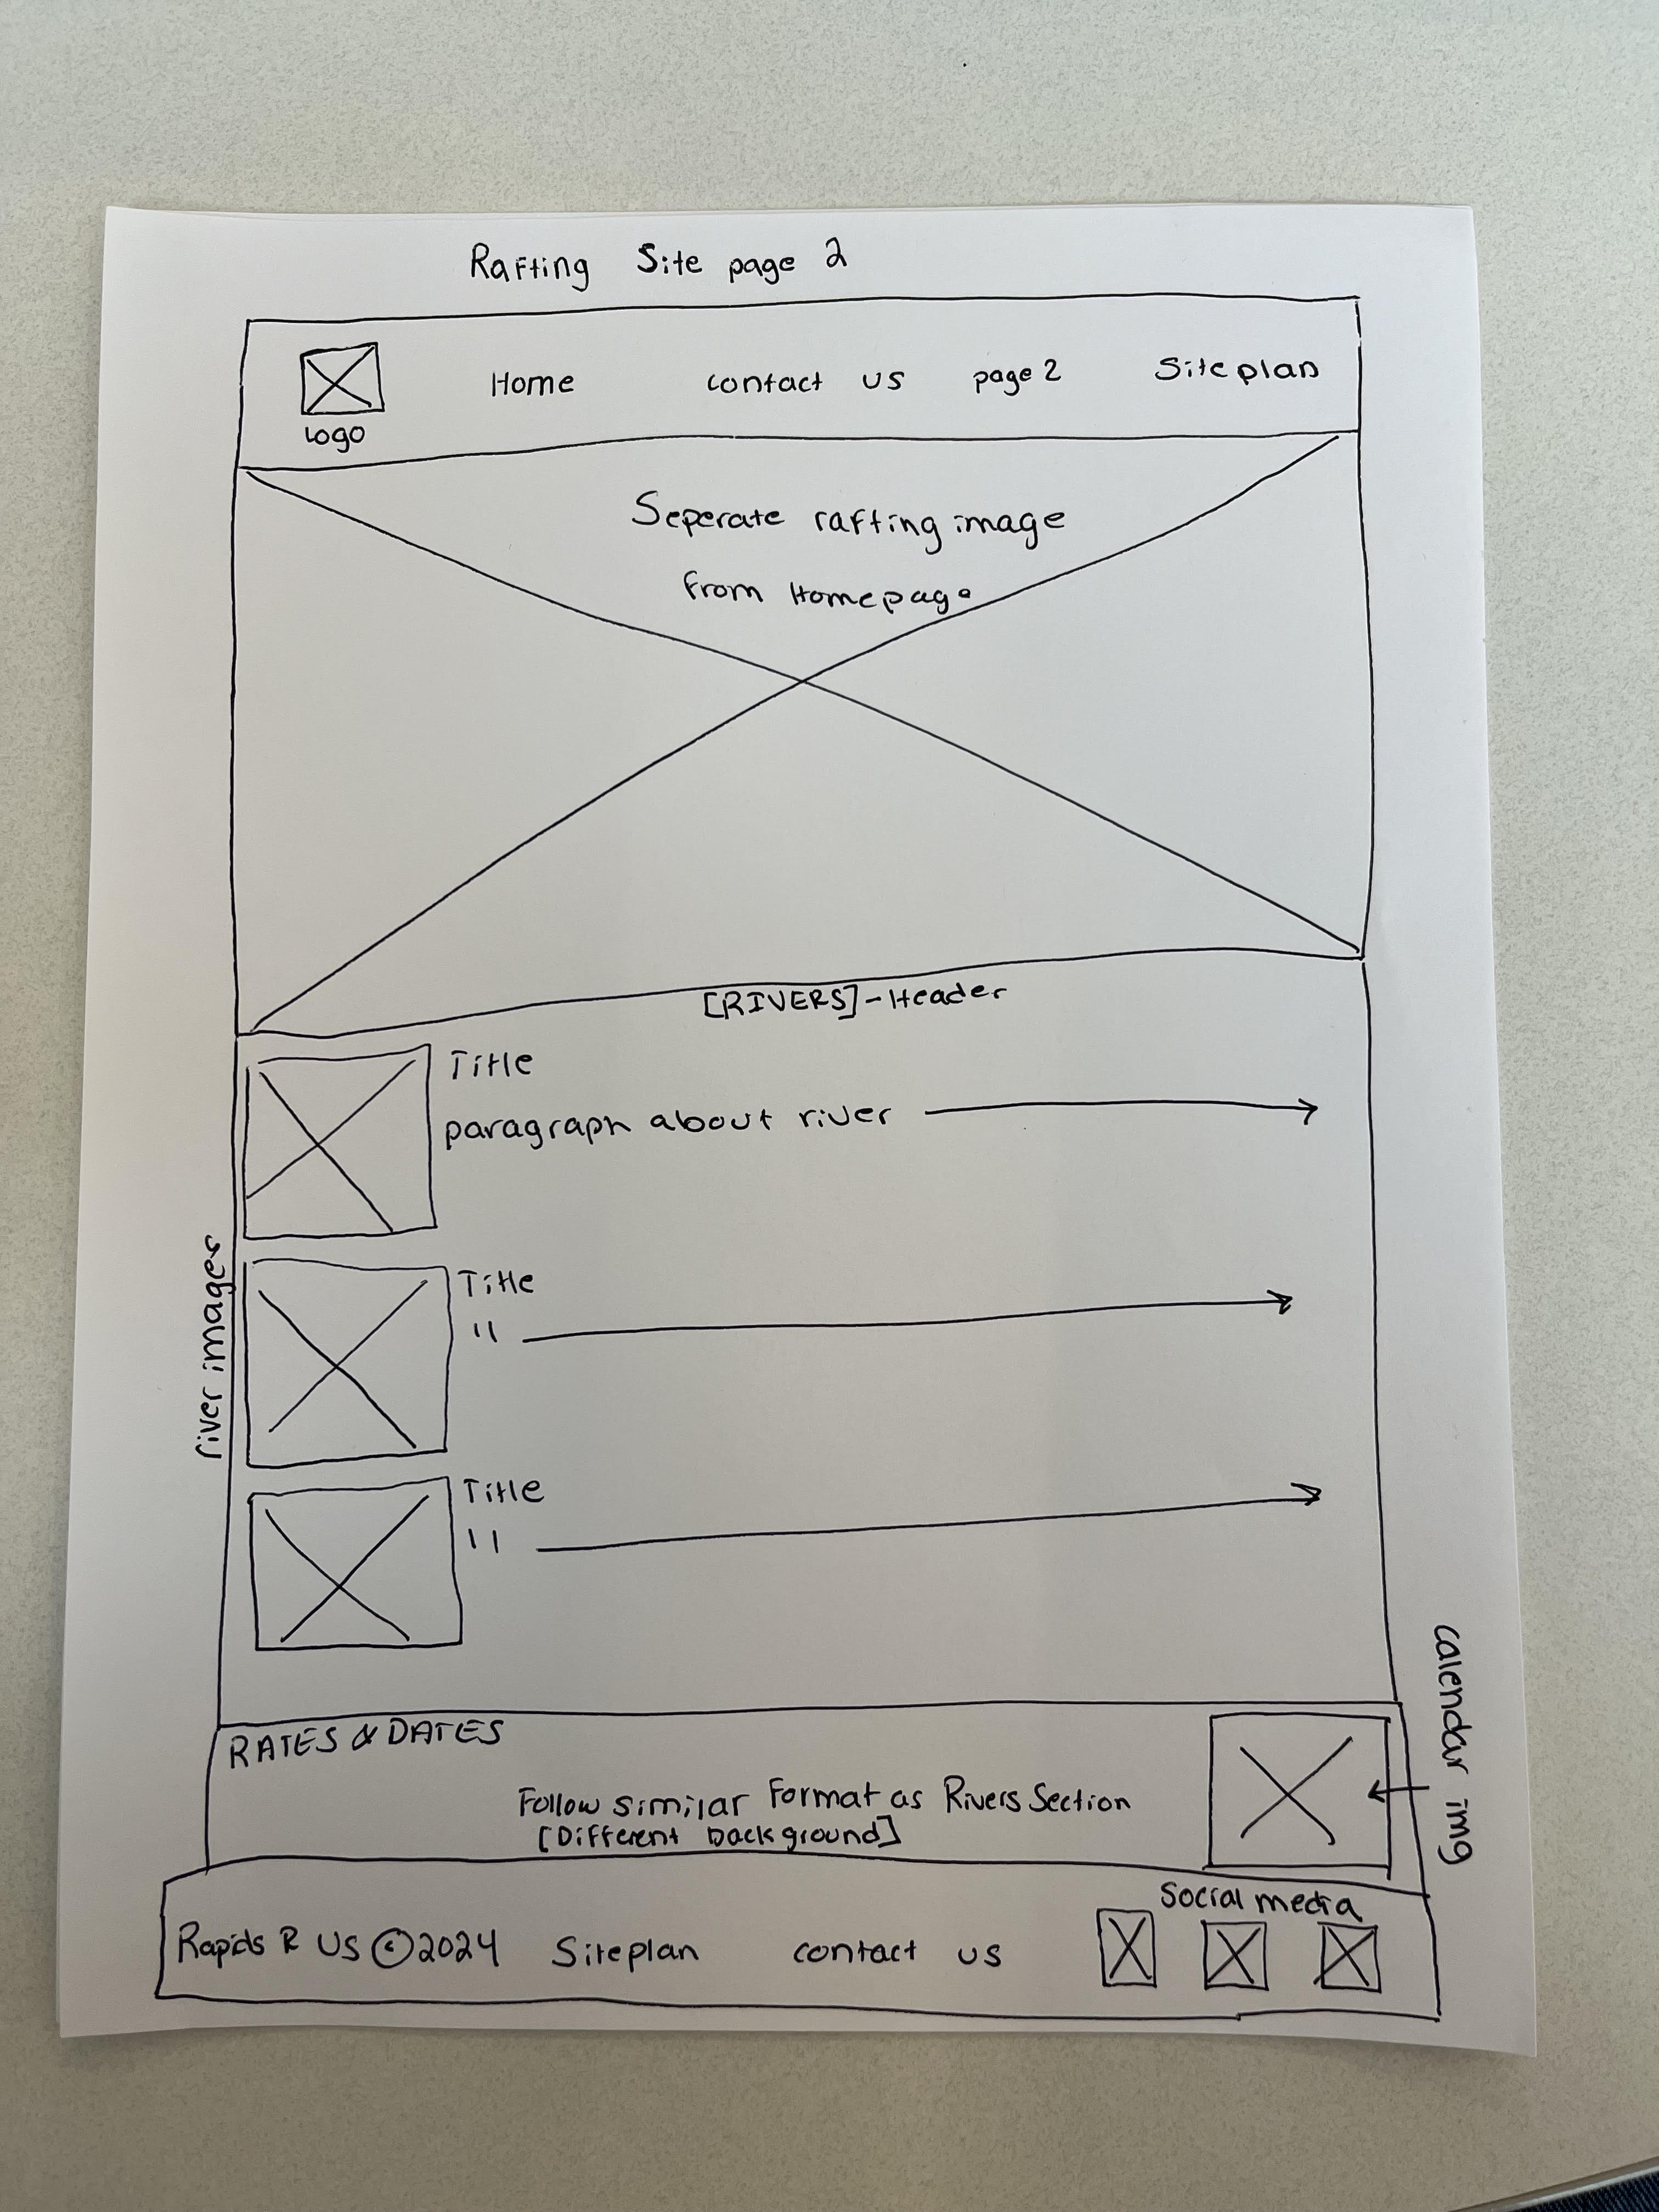 Rafting Site page 2
Home contact us page 2 Siteplan
Logo
Seperate rafting image
from Homepage
[RIVERS]-Header
Title
paragraph about river
river images
Title
"
Title
"
RATES & DATES
Follow similar Format as Rivers Section
[Different background]
calendar img
Social media
Rapids R US ©2024 Siteplan contact us